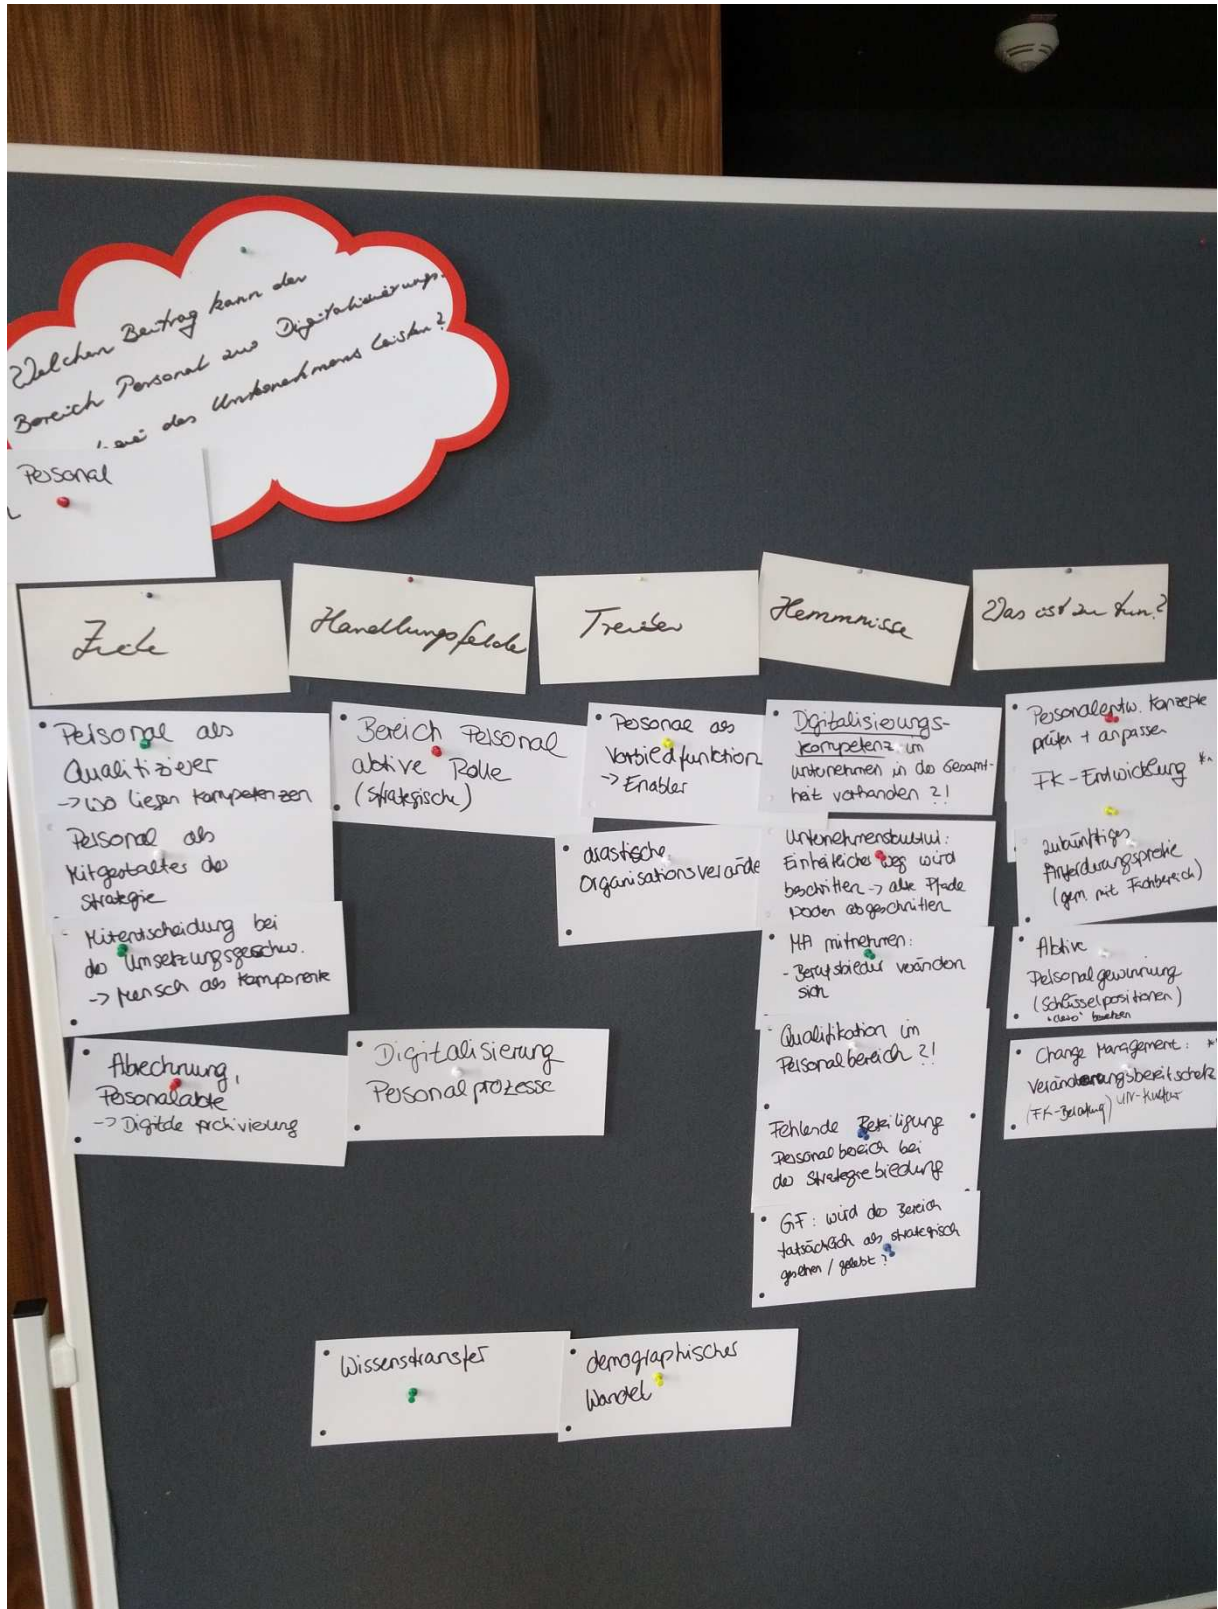 Welchen Beitrag kann der
Bereich Personal zur Digitalisierungs-
des Unternehmens leisten?
Personal
Ziele
Handlungsfelder
Treiber
Hemmnisse
Was ist zu tun?
Personal als
Qualifizierer
-> wo liegen Kompetenzen
Personal als
Mitgestalter der
Strategie
Mitentscheidung bei
der Umsetzungsgeschw.
-> Mensch als Komponente
Abrechnung,
Personalakte
-> Digitale Archivierung
Bereich Personal
aktive Rolle
(Strategische)
Digitalisierung
Personalprozesse
Wissenstransfer
Personal als
Vorbildfunktion
-> Enabler
drastische
Organisationsverände
demographischer
Wandel
Digitalisierungs-
kompetenz im
Unternehmen in der Gesamt-
heit vorhanden ?!
Unternehmenskultur:
Einheitlicher Weg wird
beschritten -> alte Pfade
abgeschnitten
MA mitnehmen:
- Berufsbilder verändern
sich
Qualifikation im
Personalbereich ?!
Fehlende Beteiligung
Personalbereich bei
der Strategiebildung
GF: wird der Bereich
tatsächlich als strategisch
gesehen / gelebt?
Personalentw. Konzepte
prüfen + anpassen
FK-Entwicklung
zukünftiges
Anforderungsprofile
(gem. mit Fachbereich)
Aktive
Personalgewinnung
(Schlüsselpositionen)
besetzen
Change Management:
Veränderungsbereitschaft
(FK-Beratung) UN-Kultur